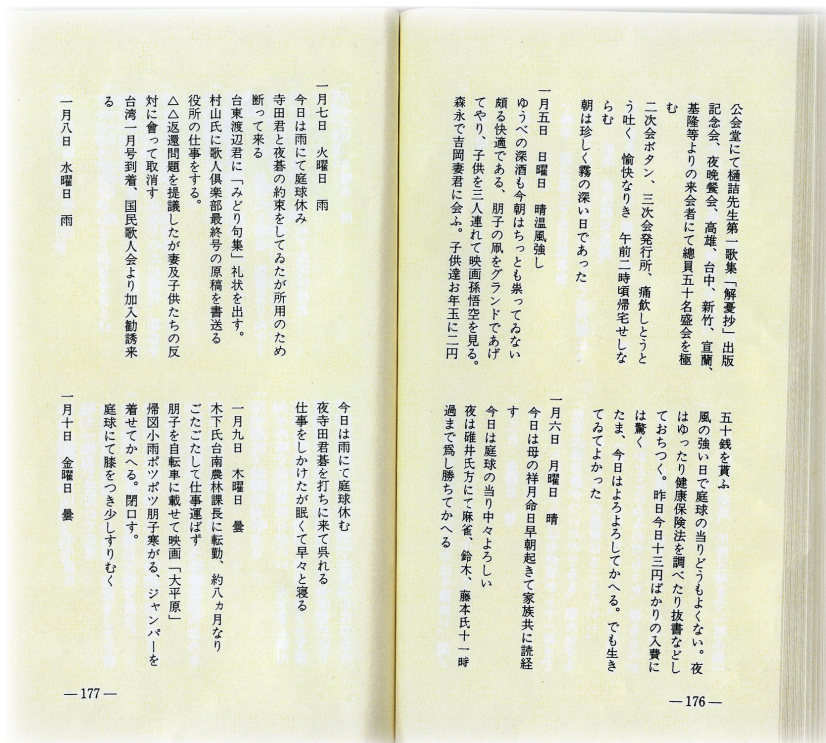 公会堂にて樋詰先生第一歌集「解憂抄」出版
記念会、夜晩餐会、高雄、台中、新竹、宜蘭、
基隆等よりの来会者にて總員五十名盛会を極
む
二次会ボタン、三次会発行所、痛飲しとうと
う吐く　愉快なりき　午前二時頃帰宅せしな
らむ
朝は珍しく霧の深い日であった
一月五日　日曜日　晴温風強し
ゆうべの深酒も今朝はちっとも祟ってゐない
頗る快適である、朋子の凧をグランドであげ
てやり、子供を三人連れて映画孫悟空を見る。
森永で吉岡妻君に会ふ。子供達お年玉に二円
五十銭を貰ふ
風の強い日で庭球の当りどうもよくない。夜
はゆったり健康保険法を調べたり抜書などし
ておちつく。昨日今日十三円ばかりの入費に
は驚く
たま、今日はよろよろしてかへる。でも生き
てゐてよかった
一月六日　月曜日　晴
今日は母の祥月命日早朝起きて家族共に読経
す
今日は庭球の当り中々よろしい
夜は碓井氏方にて麻雀、鈴木、藤本氏十一時
過まで爲し勝ちてかへる
—176—
一月七日　火曜日　雨
今日は雨にて庭球休み
寺田君と夜碁の約束をしてゐたが所用のため
断って来る
台東渡辺君に「みどり句集」礼状を出す。
村山氏に歌人倶楽部最終号の原稿を書送る
役所の仕事をする。
△△返還問題を提議したが妻及子供たちの反
対に會って取消す
台湾一月号到着、国民歌人会より加入勧誘来
る
一月八日　水曜日　雨
今日は雨にて庭球休む
夜寺田君碁を打ちに来て呉れる
仕事をしかけたが眠くて早々と寝る
一月九日　木曜日　曇
木下氏台南農林課長に転勤、約八ヵ月なり
ごたごたして仕事運ばず
朋子を自転車に載せて映画「大平原」
帰図小雨ポツポツ朋子寒がる、ジャンパーを
着せてかへる。閉口す。
庭球にて膝をつき少しすりむく
一月十日　金曜日　曇
—177—